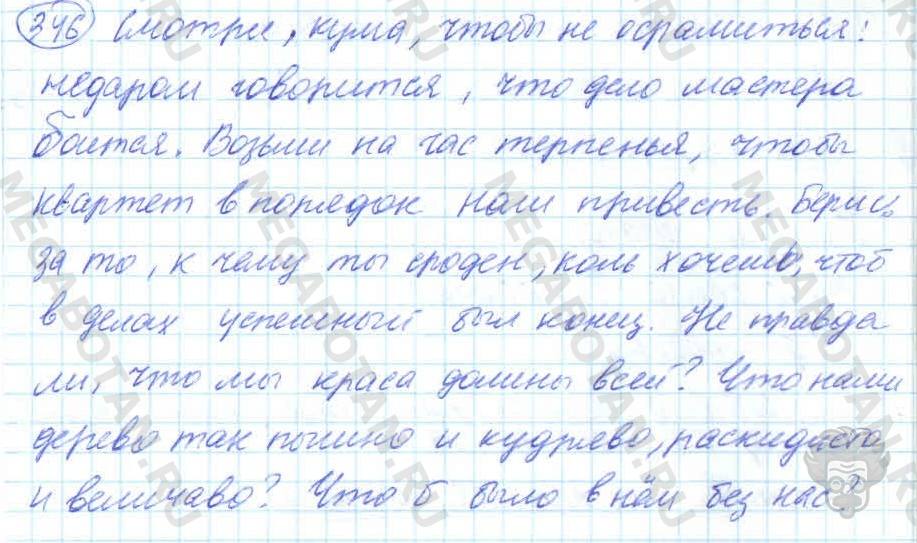 346 Смотри, кума, чтобы не осрамиться:
недаром говорится, что дело мастера
боится. Возьми на час терпенья, чтобы
квартет в порядок наш привесть. Берись
за то, к чему ты сроден, коль хочешь, чтоб
в делах успешный был конец. Не правда
ли, что мы краса долины всей? Что нами
дерево так пышно и кудряво, раскидисто
и величаво? Что б было в нём без нас?
MEGABOTAN.RU
MEGABOTAN.RU
MEGABOTAN.RU
MEGABOTAN.RU